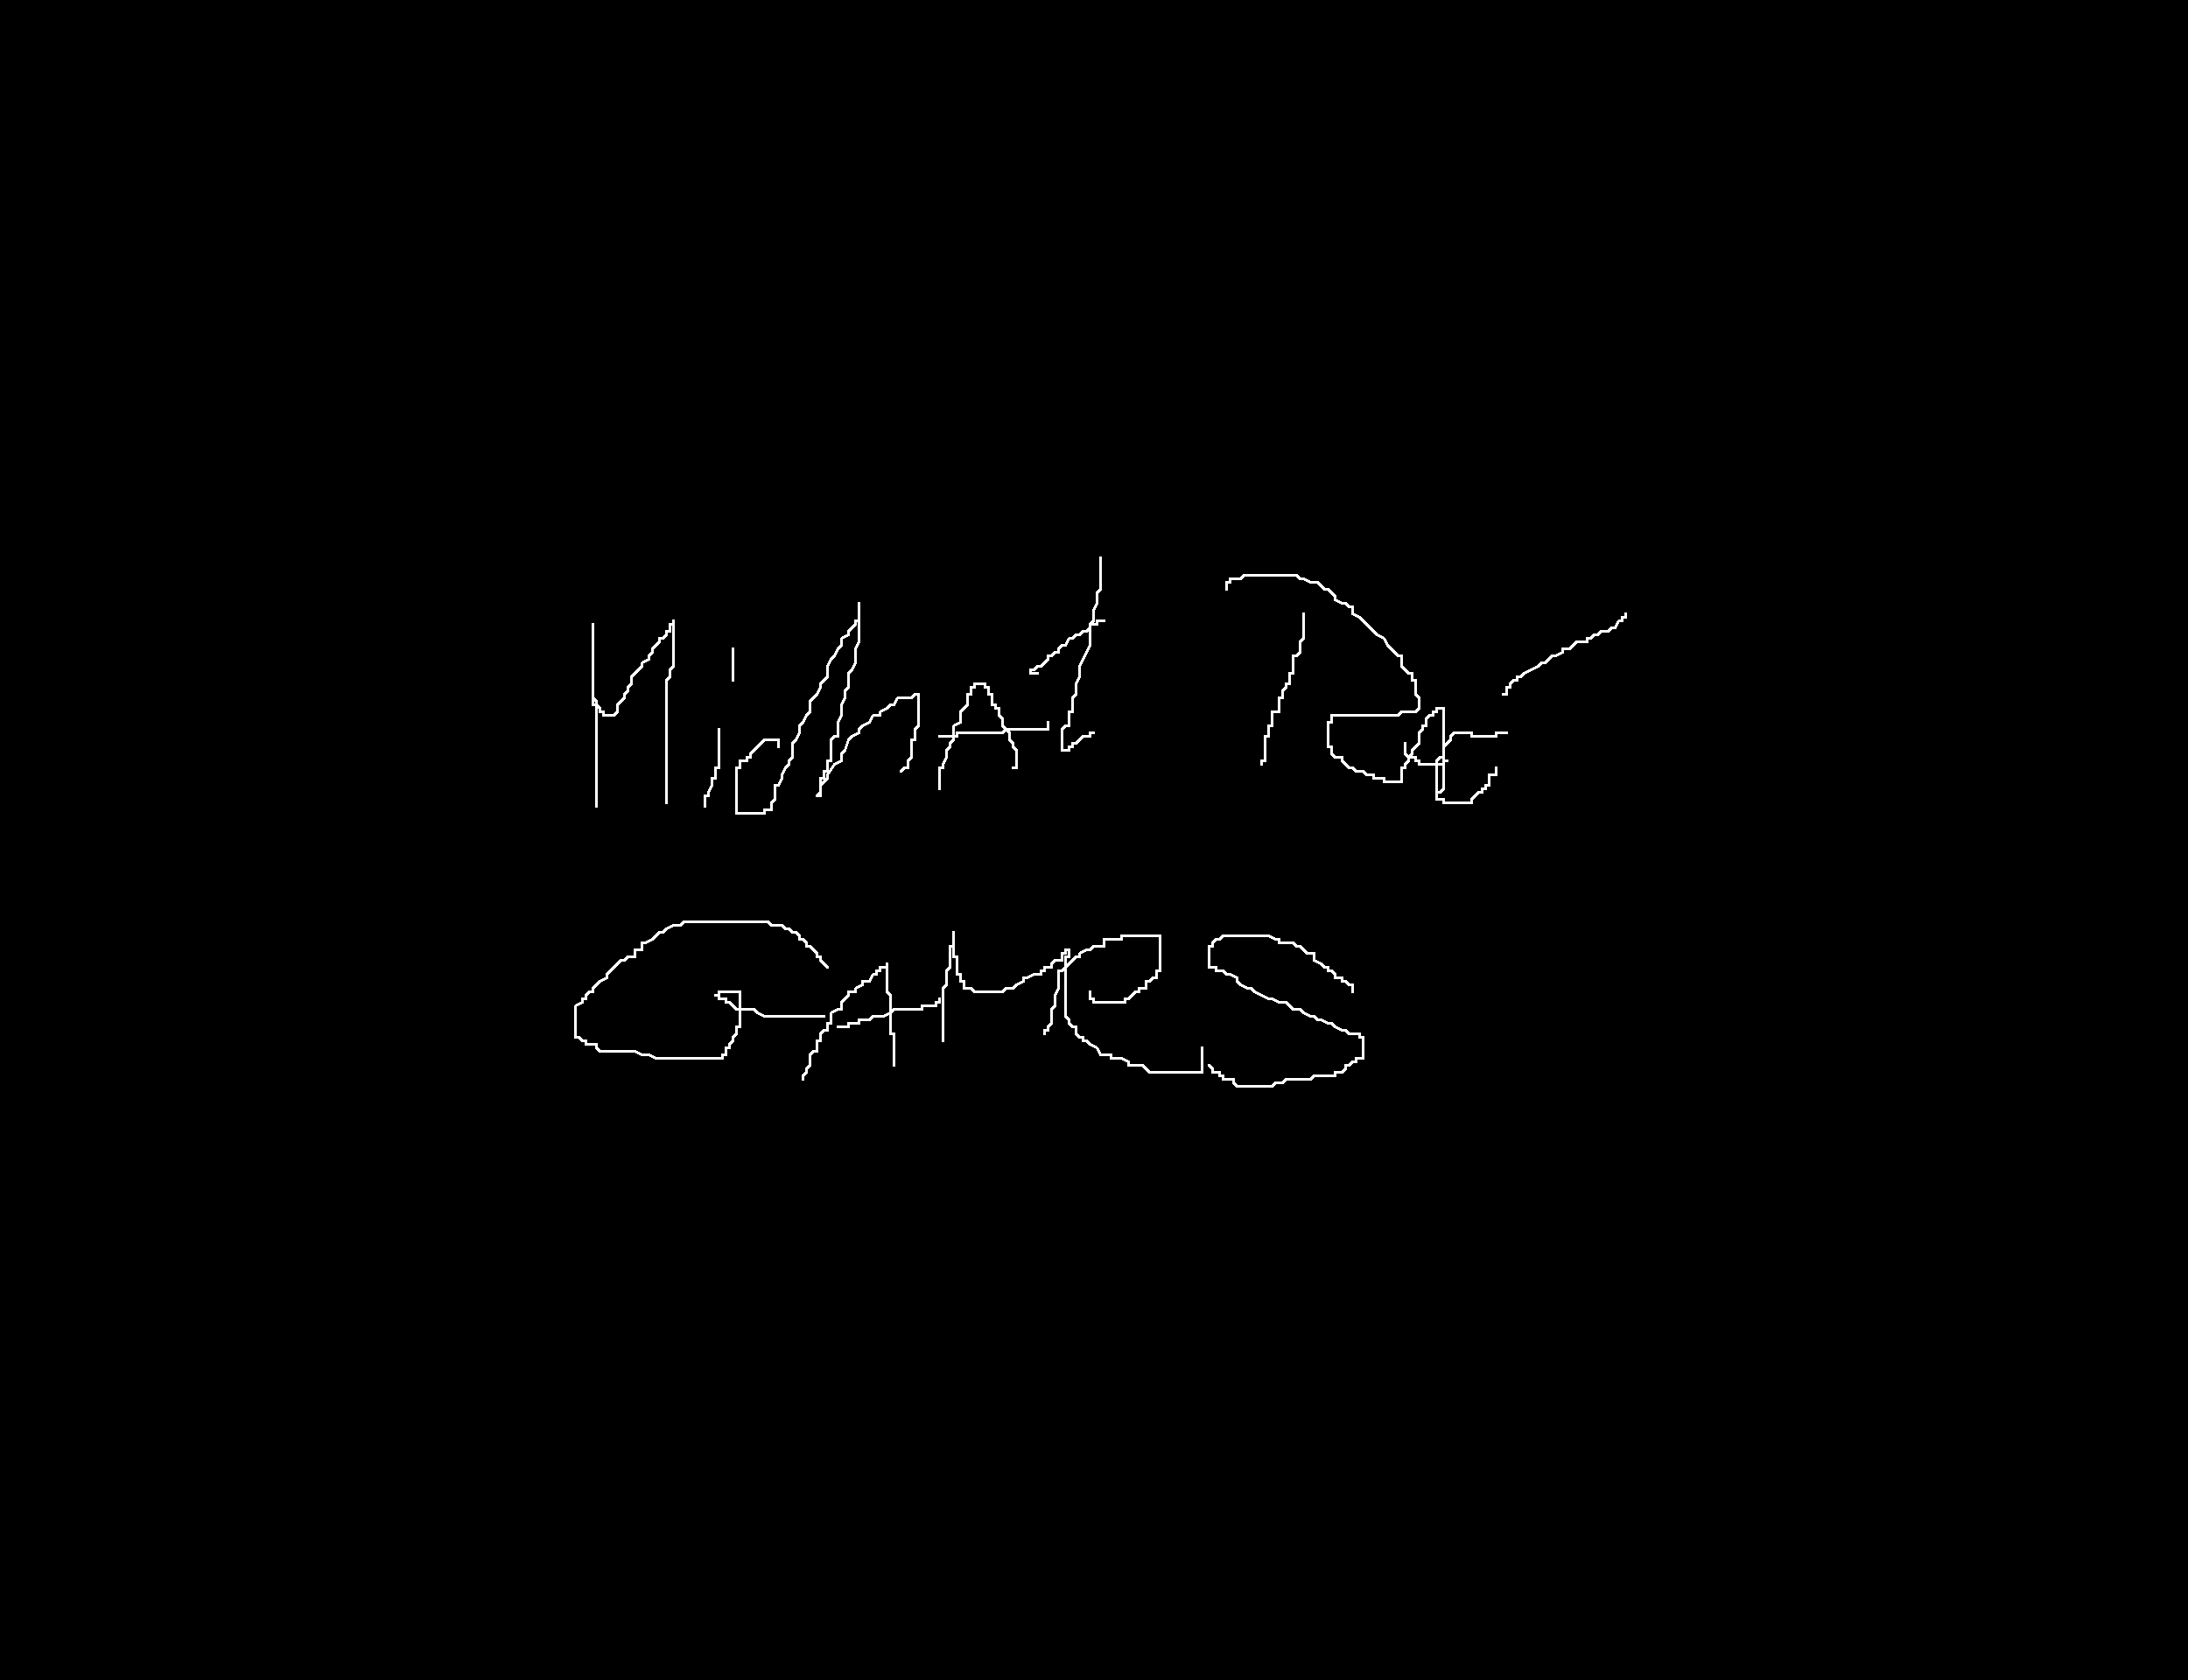 Michał Dać
GAMES